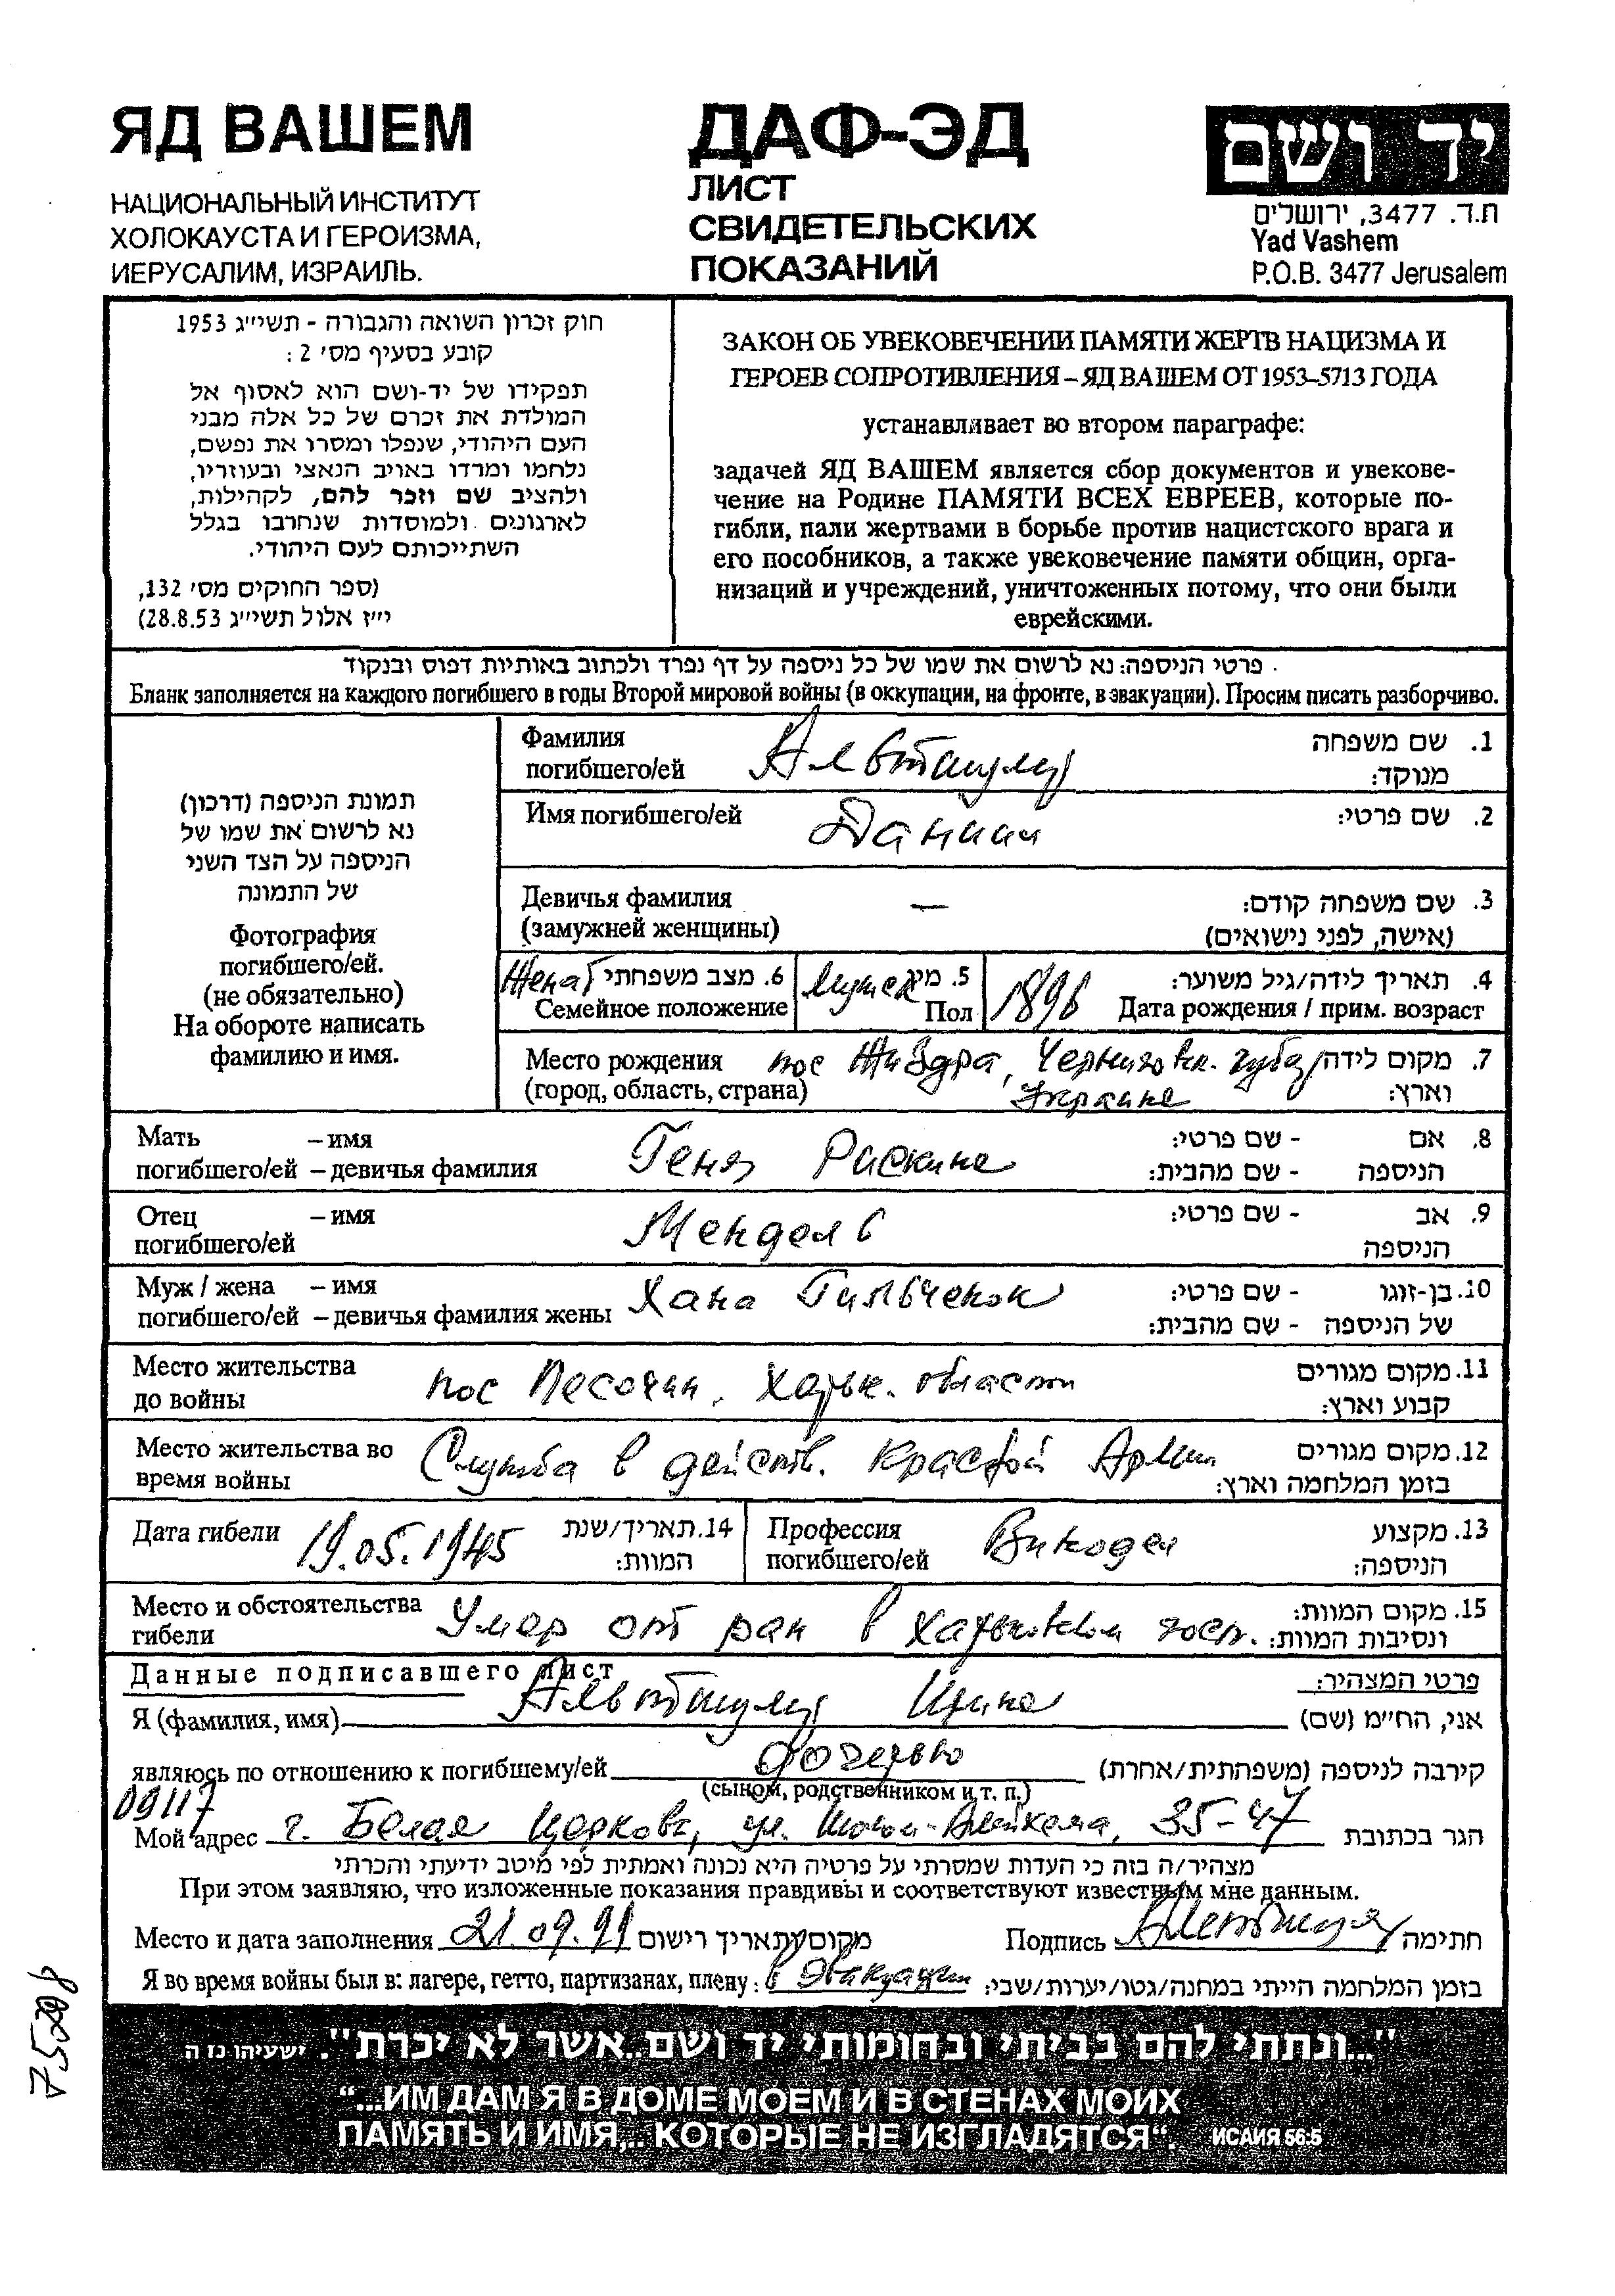 ЯД ВАШЕМ
НАЦИОНАЛЬНЫЙ ИНСТИТУТ
ХОЛОКАУСТА И ГЕРОИЗМА,
ИЕРУСАЛИМ, ИЗРАИЛЬ.
ДАФ-ЭД
ЛИСТ
СВИДЕТЕЛЬСКИХ
ПОКАЗАНИЙ
יד ושם
ת.ד. 3477, ירושלים
Yad Vashem
P.O.B. 3477 Jerusalem
חוק זכרון השואה והגבורה - תשי״ג 1953
קובע בסעיף מס׳ 2 :
תפקידו של יד-ושם הוא לאסוף אל
המולדת את זכרם של כל אלה מבני
העם היהודי, שנפלו ומסרו את נפשם,
נלחמו ומרדו באויב הנאצי ובעוזריו,
ולהציב שם וזכר להם, לקהילות,
לארגונים ולמוסדות שנחרבו בגלל
השתייכותם לעם היהודי.
(ספר החוקים מס׳ 132,
י״ז אלול תשי״ג 28.8.53)
ЗАКОН ОБ УВЕКОВЕЧЕНИИ ПАМЯТИ ЖЕРТВ НАЦИЗМА И
ГЕРОЕВ СОПРОТИВЛЕНИЯ – ЯД ВАШЕМ ОТ 1953–5713 ГОДА
устанавливает во втором параграфе:
задачей ЯД ВАШЕМ является сбор документов и увекове-
чение на Родине ПАМЯТИ ВСЕХ ЕВРЕЕВ, которые по-
гибли, пали жертвами в борьбе против нацистского врага и
его пособников, а также увековечение памяти общин, орга-
низаций и учреждений, уничтоженных потому, что они были
еврейскими.
פרטי הניספה: נא לרשום את שמו של כל ניספה על דף נפרד ולכתוב באותיות דפוס ובנקוד
Бланк заполняется на каждого погибшего в годы Второй мировой войны (в оккупации, на фронте, в эвакуации). Просим писать разборчиво.
תמונת הניספה (דרכון)
נא לרשום את שמו של
הניספה על הצד השני
של התמונה
Фотография
погибшего/ей.
(не обязательно)
На обороте написать
фамилию и имя.
Фамилия Альтшулер 1. שם משפחה
погибшего/ей מנוקד:
Имя погибшего/ей Даниил 2. שם פרטי:
Девичья фамилия — 3. שם משפחה קודם:
(замужней женщины) (אישה, לפני נישואים)
Женат 6. מצב משפחתי 5. מין 4. תאריך לידה/גיל משוער:
Семейное положение Мужск Пол 1896 Дата рождения / прим. возраст
Место рождения пос Жиздра, Черниговск. губ 7. מקום לידה
(город, область, страна) Украина וארץ:
Мать – имя Геня Раскина 8. אם - שם פרטי:
погибшего/ей – девичья фамилия הניספה - שם מהבית:
Отец – имя Мендель 9. אב - שם פרטי:
погибшего/ей הניספה
Муж / жена – имя Хана Гильченок 10. בן-זוגו - שם פרטי:
погибшего/ей – девичья фамилия жены של הניספה - שם מהבית:
Место жительства пос Песочин, Харьк. области 11. מקום מגורים
до войны קבוע וארץ:
Место жительства во Служба в действ. Красной Армии 12. מקום מגורים
время войны בזמן המלחמה וארץ:
Дата гибели 19.05.1945 14. תאריך/שנת המוות:
Профессия 13. מקצוע
погибшего/ей הניספה:
Место и обстоятельства Умер от ран в Харьковском госп. 15. מקום המוות:
гибели ונסיבות המוות:
Данные подписавшего лист פרטי המצהיר:
Я (фамилия, имя) Альтшулер Ирина אני, הח״מ (שם)
являюсь по отношению к погибшему/ей дочерью קירבה לניספה (משפחתית/אחרת)
(сыном, родственником и т. п.)
09117
Мой адрес г. Белая Церковь, ул. Шолом-Алейхема, 35-47 הגר בכתובת
מצהיר/ה בזה כי העדות שמסרתי על פרטיה היא נכונה ואמתית לפי מיטב ידיעתי והכרתי
При этом заявляю, что изложенные показания правдивы и соответствуют известным мне данным.
Место и дата заполнения 21.09.99 מקום ותאריך רישום Подпись חתימה
Я во время войны был в: лагере, гетто, партизанах, плену: в эвакуации בזמן המלחמה הייתי במחנה/גטו/יערות/שבי:
"...ונתתי להם בביתי ובחומותי יד ושם...אשר לא יכרת". ישעיהו נז ה
“...ИМ ДАМ Я В ДОМЕ МОЕМ И В СТЕНАХ МОИХ
ПАМЯТЬ И ИМЯ,.. КОТОРЫЕ НЕ ИЗГЛАДЯТСЯ“. ИСАИЯ 56:5